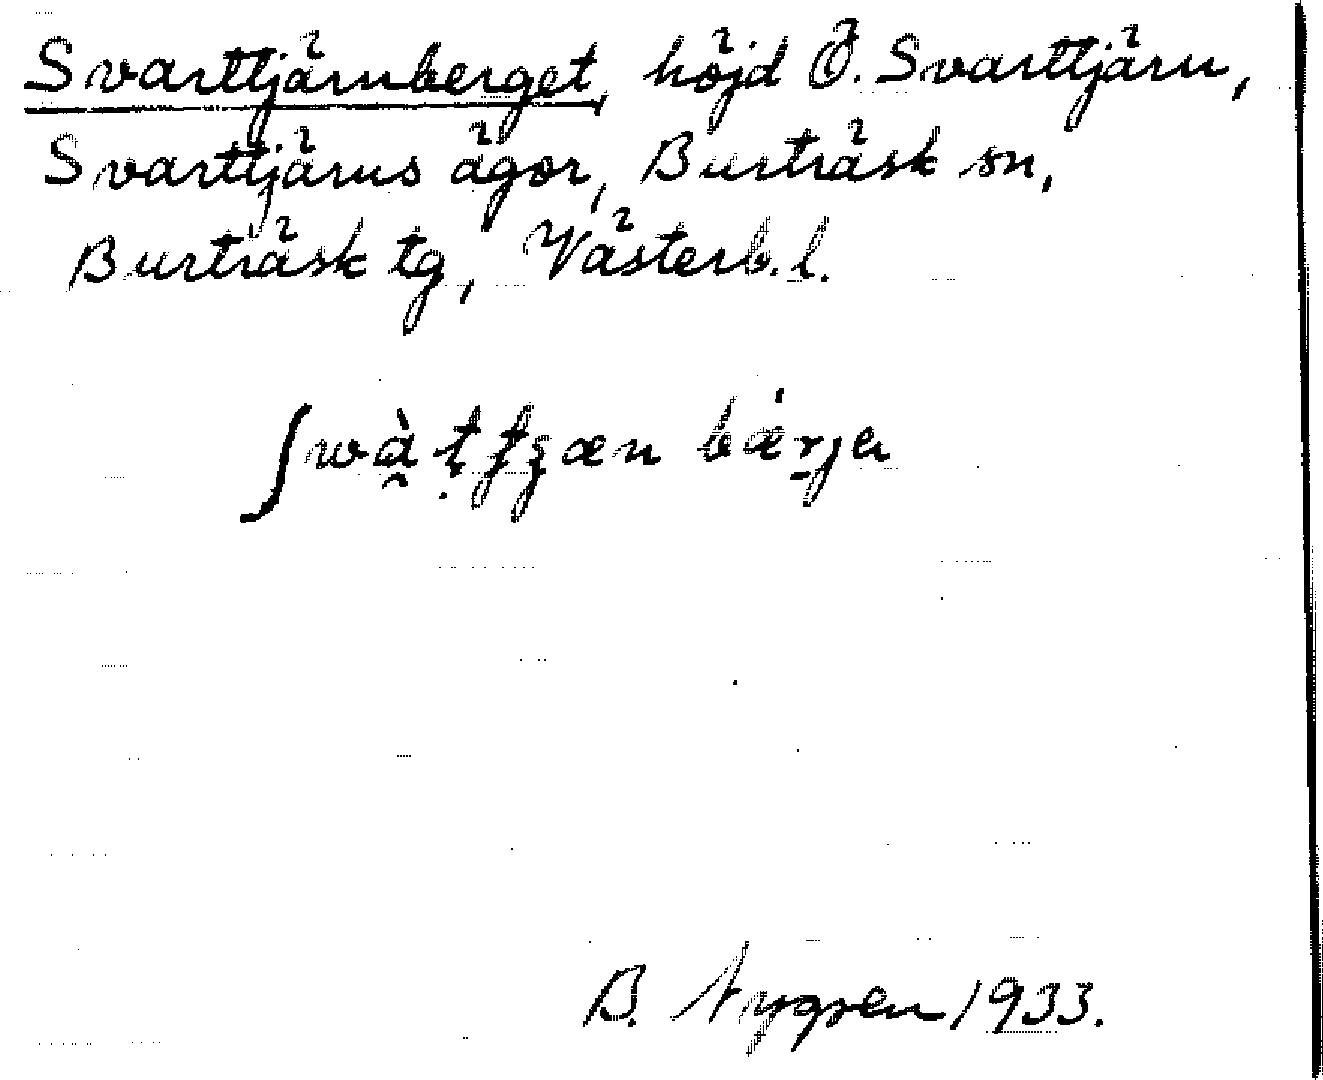 Svarttjärnberget, höjd Ö. Svarttjärn,
Svarttjärns ägor, Burträsk sn,
Burträsk tg, Västerb. l.
bærje
B. Nygren 1933.